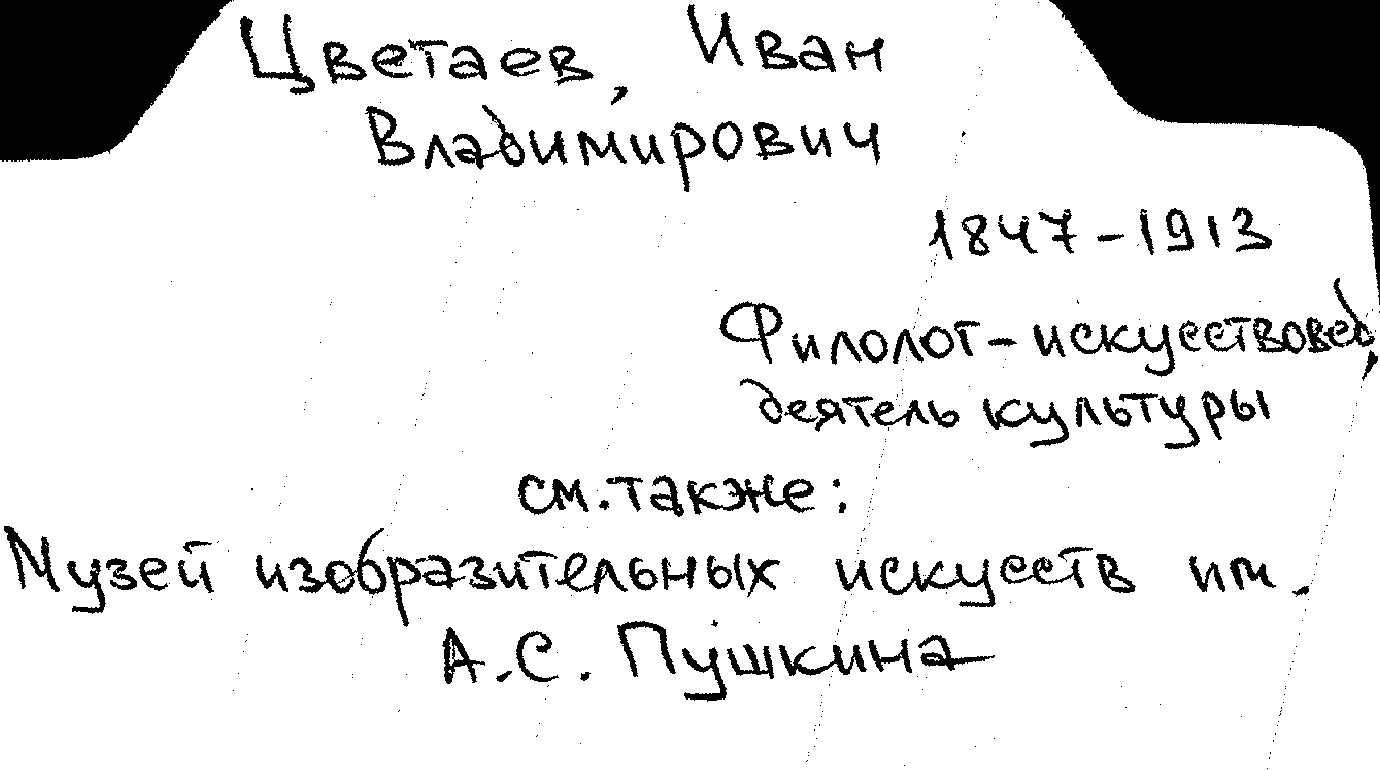 Цветаев, Иван
Владимирович
1847-1913
Филолог-искусствовед,
деятель культуры
см. также:
Музей изобразительных искусств им.
А.С. Пушкина